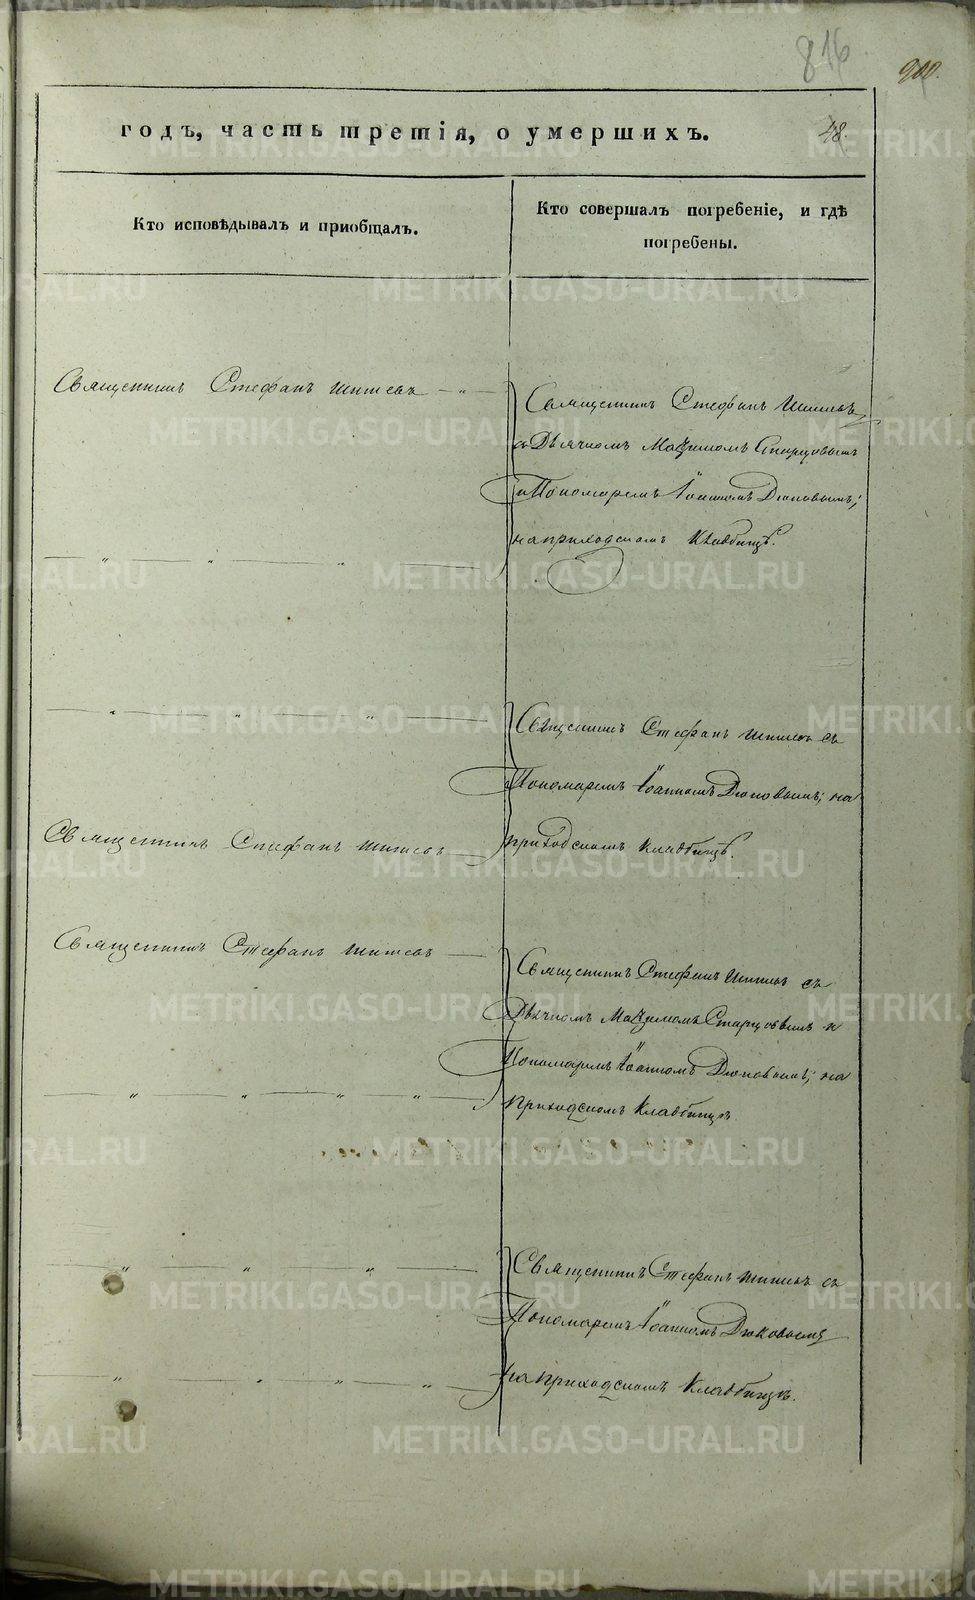 816
900.
годъ, часть третія, о умершихъ.
48.
Кто исповѣдывалъ и приобщалъ.
Кто совершалъ погребеніе, и гдѣ
погребены.
Священникъ Стефанъ
Священникъ Стефанъ
съ Дьячкомъ Маѯимомъ Старцовымъ
и Пономаремъ Іоанномъ Дюковымъ;
на приходскомъ Кладбищѣ.
Священникъ Стефанъ съ
Пономаремъ Іоанномъ Дюковымъ; на
приходскомъ кладбищѣ.
Священникъ Стефанъ
Священникъ Стефанъ
Священникъ Стефанъ съ
Дьячкомъ Маѯимомъ Старцовымъ и
Пономаремъ Іоанномъ Дюковымъ; на
приходскомъ Кладбищѣ
Священникъ Стефанъ съ
Пономаремъ Іоанномъ Дюковымъ
на приходскомъ Кладбищѣ.
METRIKI.GASO-URAL.RU